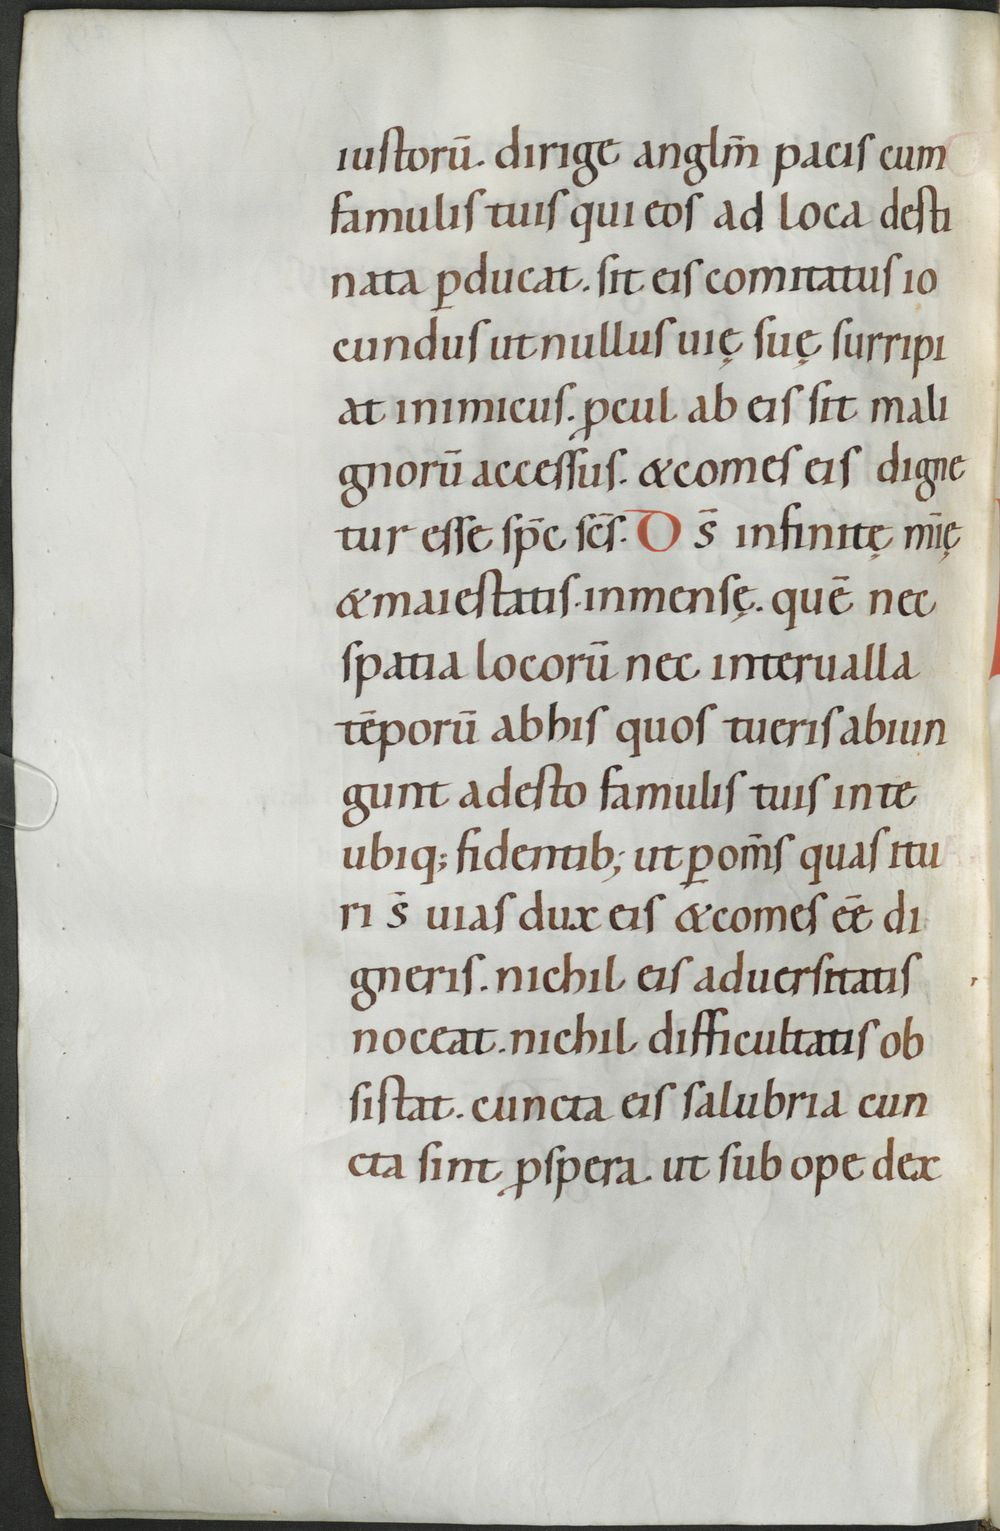 iustorū. dirige anglm̄ pacis cum
famulis tuis qui eos ad loca desti
nata ꝑducat. sit eis comitatus io
cundus ut nullus uię suę surripi
at inimicus. ꝓcul ab eis sit mali
gnorū accessus. &comes eis digne
tur esse sp̄c sc̄s. Ds̄ infinitę mīę
&maiestatis. inmensę. quē nec
spatia locorū nec interualla
tēporū abhis quos tueris abiun
gunt adesto famulis tuis inte
ubiq; fidentib; ut ꝑ om̄s quas itu
ri s̄ uias dux eis &comes eē di
gneris. nichil eis aduersitatis
noceat. nichil difficultatis ob
sistat. cuncta eis salubria cun
cta sint ꝓspera. ut sub ope dex